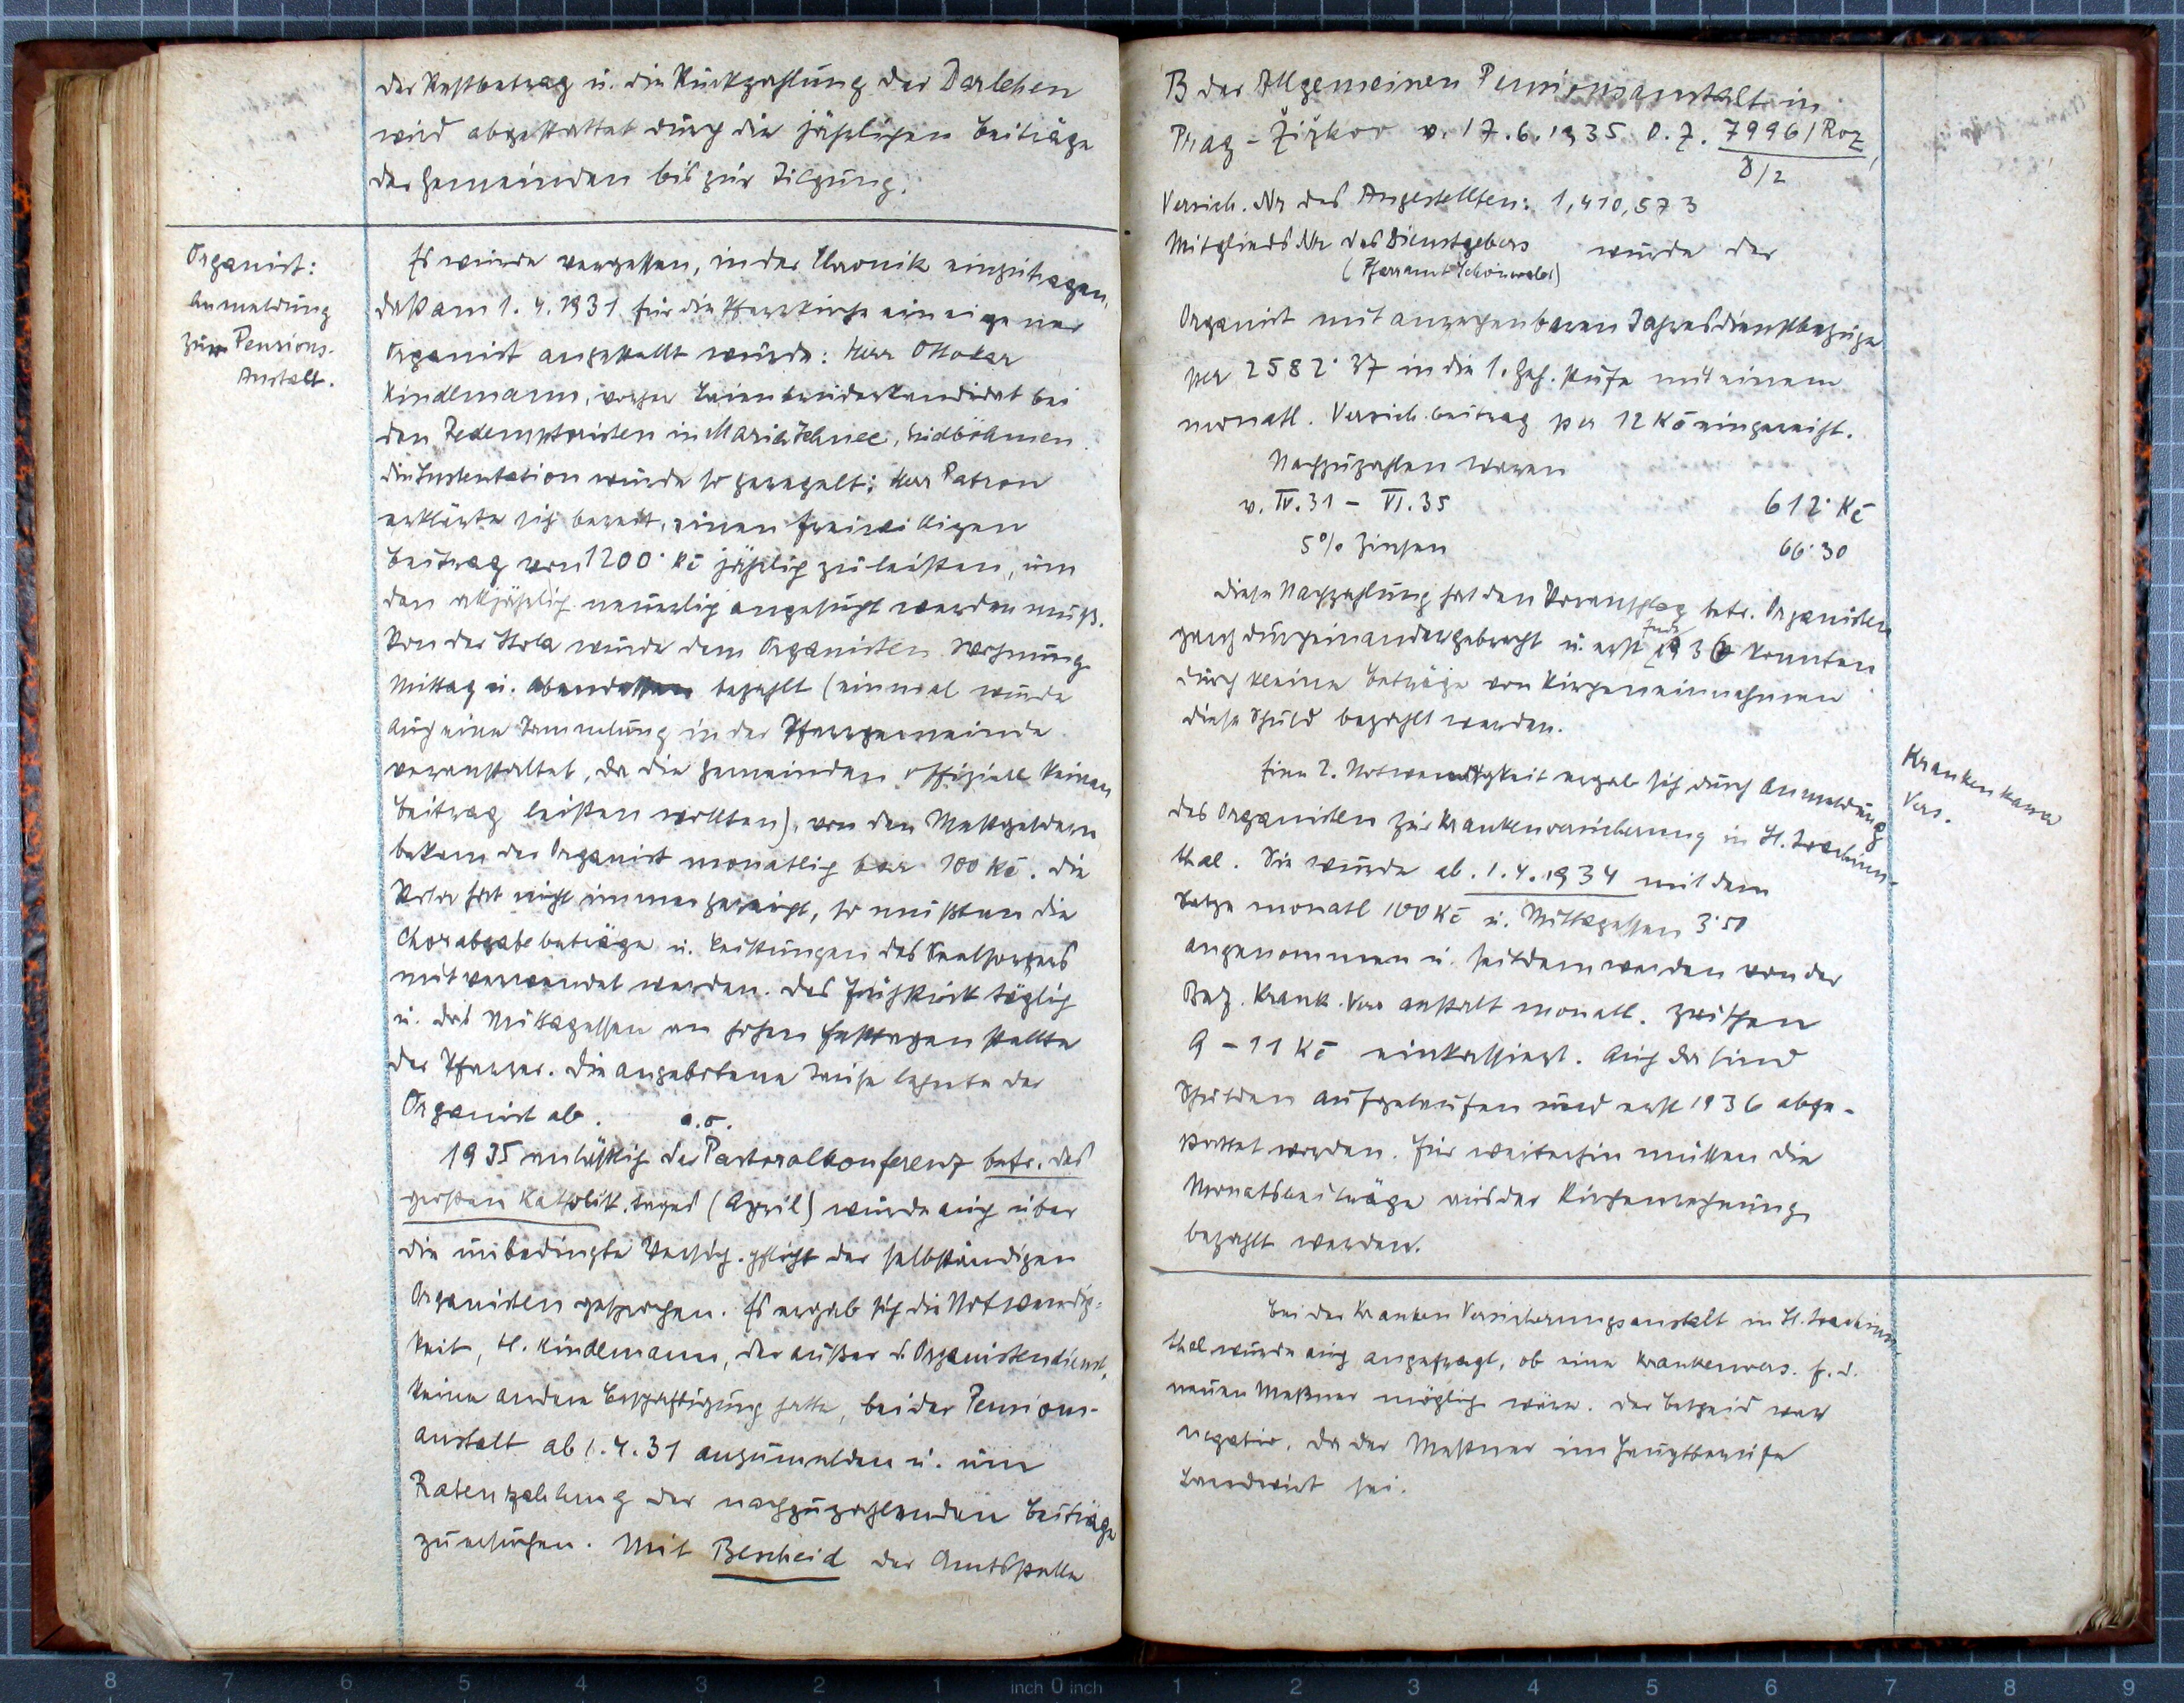 der Restbetrag u. die Rückzahlung der Darlehen
wird abgestattet durch die jährlichen Beiträge
der Gemeinden bis zur Tilgung.
Organist:
Anmeldung
zur Pensions-
Anstalt.
Es wurde vergessen, in der Chronik einzutragen,
daß am 1. 4. 1931 für die Pfarrkirche ein eigener
Organist angestellt wurde: Herr Ottokar
Kindlmann, vorher Laienbruderkandidat bei
den Redemptoristen in Maria Schnee, Südböhmen.
Die Sustentation wurde so geregelt: Herr Patron
erklärte sich bereit, einen freiwilligen
Beitrag von 1200· Kč jährlich zu leisten, um
den alljährlich neuerlich angesucht werden muß.
Von der Stola wurde dem Organisten Wohnung
Mittag u. Abendessen bezahlt (einmal wurde
auch eine Sammlung in der Pfarrgemeinde
veranstaltet, da die Gemeinden offiziell keinen
Beitrag leisten wollten), von den Meßgeldern
bekam der Organist monatlich bar 100 Kč. Die
Stola hat nicht immer gereicht, so mußten die
Chorabgabebeträge u. Leistungen des Seelsorgers
mitverwendet werden. Das Frühstück täglich
u. das Mittagessen an hohen Festtagen stellte
der Pfarrer. Die angebotene Jause lehnte der
Organist ab.
a.o.
1935 anläßlich der Pastoralkonferenz betr. des
großen Katholik.tages (April) wurde auch über
die unbedingte Versich.pflicht der selbständigen
Organisten gesprochen. Es ergab sich die Notwendig-
keit, H. Kindlmann, der außer d. Organistendienst,
keine andere Beschäftigung hatte, bei der Pensions-
anstalt ab 1. 4. 31 anzumelden u. um
Ratenzahlung der nachzuzahlenden Beiträge
zu ersuchen. Mit Bescheid der Amtsstelle
B der Allgemeinen Pensionsanstalt in
Prag - Žižkov v. 17. 6. 1935 O. Z. 7996/Roz,
D/2
Versich. Nr des Angestellten: 1,410,573
Mitglieds Nr des Dienstgebers wurde der
(Pfarramt Schönwald)
Organist mit anrechenbaren Jahresdienstbezüge
per 2582· 37 in die 1. Geh. Stufe mit einem
monatl. Versich.beitrag per 12 Kč eingereiht.
Nachzuzahlen waren
v. IV. 31 - VI. 35 612· Kč
5% Zinsen 66· 30
Diese Nachzahlung hat den Voranschlag betr. Organisten
ganz durcheinandergebracht u. erst Ende 1936 konnten
durch kleine Beträge von Kircheneinnahmen
diese Schuld bezahlt werden.
Krankenkassa
Vers.
Eine 2. Notwendigkeit ergab sich durch Anmeldung
des Organisten zur Krankenversicherung in St. Joachims-
thal. Sie wurde ab 1. 4. 1934 mit dem
Satze monatl 100 Kč u. Mittagessen 3· 50
angenommen u. seitdem werden von der
Bez. Krank. Vers anstalt monatl. zwischen
9 - 11 Kč einkassiert. Auch da sind
Schulden aufgelaufen und erst 1936 abge-
stattet worden. Für weiterhin müssen die
Monatsbeiträge aus der Kirchenrechnung
bezahlt werden.
Bei der Kranken Versicherungsanstalt in St. Joachims
thal wurde auch angefragt, ob eine Krankenvers. f. d.
neuen Meßner möglich wäre. Der Bescheid war
negativ, da der Meßner im Hauptberufe
Landwirt sei.